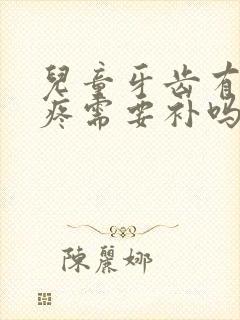 兒童牙齿有
疼需要补吗
陳麗娜